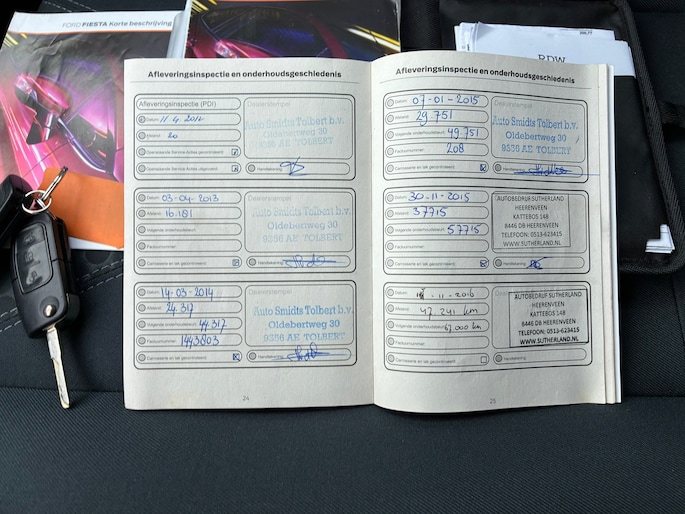 FORD FIESTA Korte beschrijving
RDW
Afleveringsinspectie en onderhoudsgeschiedenis
Afleveringsinspectie (PDI)
Dealerstempel
Datum: 11 4 2012
Afstand: 20
Openstaande Service-Acties gecontroleerd
Openstaande Service-Acties uitgevoerd
Auto Smidts Tolbert b.v.
Oldebertweg 30
9356 AE TOLBERT
Handtekening:
Datum: 03-04-2013
Afstand: 16.181
Volgende onderhoudsbeurt:
Factuurnummer:
Carrosserie en lak gecontroleerd:
Dealerstempel
Auto Smidts Tolbert b.v.
Oldebertweg 30
9356 AE TOLBERT
Handtekening:
Datum: 14-03-2014
Afstand: 24.317
Volgende onderhoudsbeurt: 44.317
Factuurnummer: 1443803
Carrosserie en lak gecontroleerd:
Dealerstempel
Auto Smidts Tolbert b.v.
Oldebertweg 30
9356 AE TOLBERT
Handtekening:
24
Afleveringsinspectie en onderhoudsgeschiedenis
Datum: 07-01-2015
Afstand: 29.751
Volgende onderhoudsbeurt: 49.751
Factuurnummer: 208
Carrosserie en lak gecontroleerd:
Dealerstempel
Auto Smidts Tolbert b.v.
Oldebertweg 30
9356 AE TOLBERT
Handtekening:
Datum: 30-11-2015
Afstand: 37715
Volgende onderhoudsbeurt: 57715
Factuurnummer:
Carrosserie en lak gecontroleerd:
AUTOBEDRIJF SUTHERLAND
HEERENVEEN
KATTEBOS 148
8446 DB HEERENVEEN
TELEFOON: 0513-623415
WWW.SUTHERLAND.NL
Handtekening:
Datum: -11-2016
Afstand: 47.241 km
Volgende onderhoudsbeurt: 67.000 km
Factuurnummer:
Carrosserie en lak gecontroleerd:
AUTOBEDRIJF SUTHERLAND
HEERENVEEN
KATTEBOS 148
8446 DB HEERENVEEN
TELEFOON: 0513-623415
WWW.SUTHERLAND.NL
Handtekening:
25